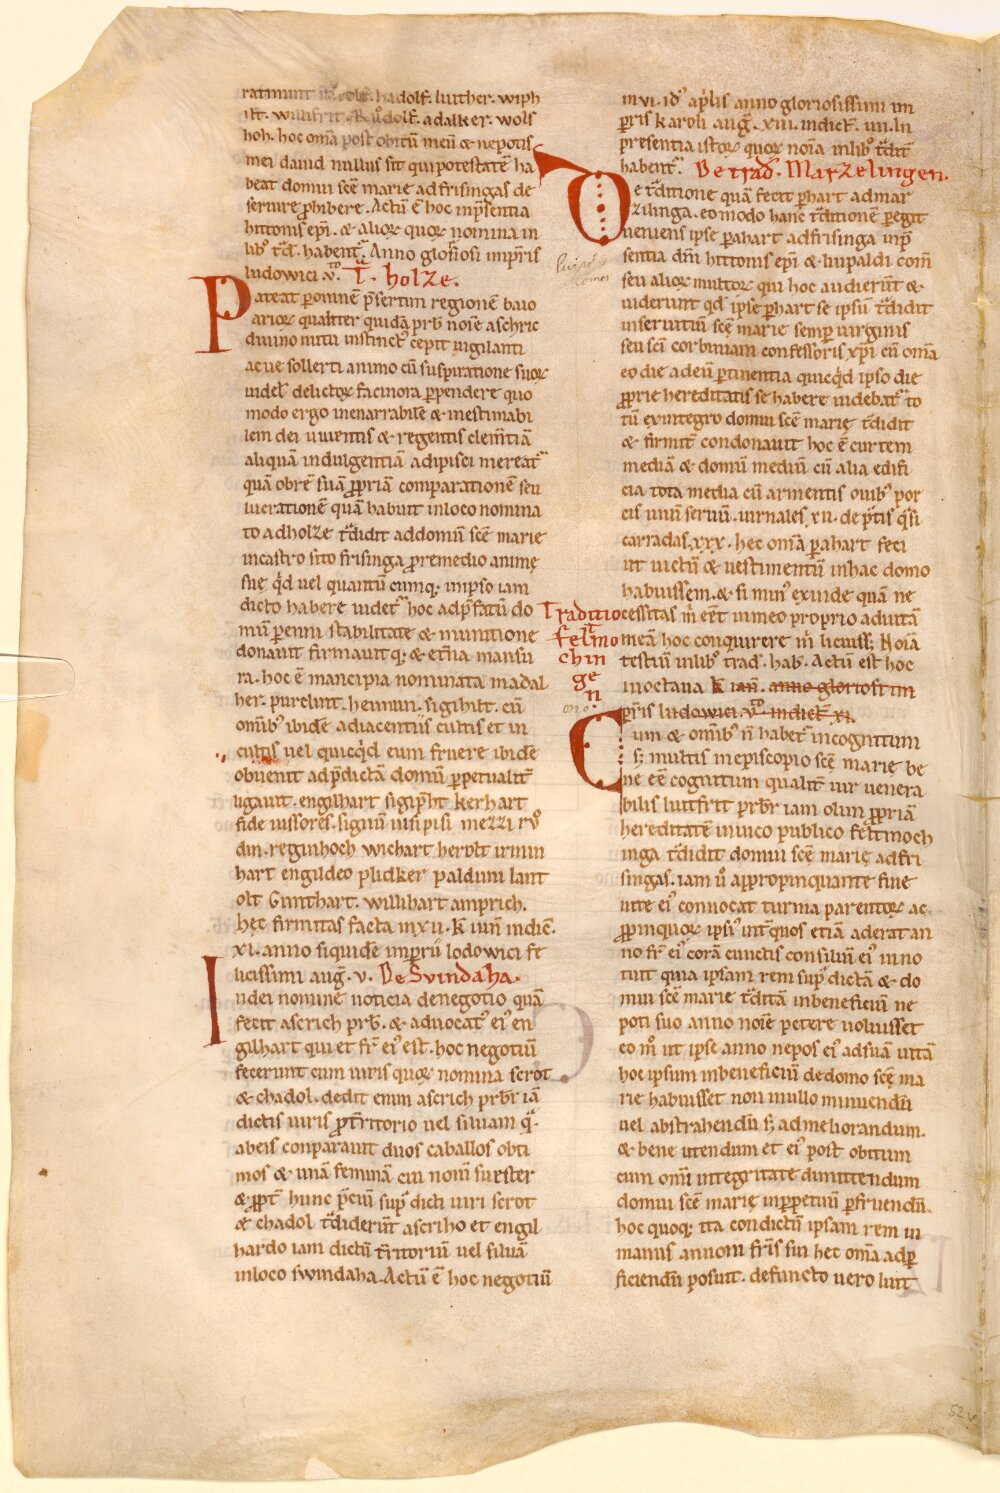 ratmunt hadolf. liuther. wiph
ilt. willifrit. Ruͦdolf. adalker. wolf
hoh. hoc om̄a post obitū meū & nepotis
mei dauid nullus sit qui potestatē ha
beat domui scē marie ad frisingas de
seruire ꝓhibere. Actū ē hoc inp̄sentia
hittonis ep̄i. & alioꝝ quoꝝ nomina in
libꝰ t̄d. habent᷑. Anno glor̄iosi imp̄ris
ludowici v. T. holze.
Pateat ꝑ omnē p̄sertim regionē baio
arioꝝ qualiter quidā prb̄ noīe aschric
diuino nutu instinctꝰ cepit uigilanti
ac ue sollerti animo cū suspiratione suoꝝ
uidel̄ delictoꝝ facinora ꝑpendere quo
modo ergo inenarrabilē & inestimabi
lem dei uiuentis & regentis clem̄tiā
aliquā indulgentiā adipisci mereat᷑
quā obrē suā ꝓpriā comparationē seu
lucrationē quā habuit inloco nomina
to adholze t̄didit ad domū scē marie
incastro sito frisinga ꝓ remedio animę
suę qd̄ uel quantū cumq; inipso iam
dicto habere uidet᷑ hoc adp̄fatū do
mū ꝑenni stabilitate & munitione
donauit firmauitq; & et̄na mansu
ra. hoc ē mancipia nominata madal
her. purclint. heimun. sigihilt. cū
omībꝰ ibidē adiacentiis cultis et in
cultis uel quicqd̄ eum fruere ibidē
obuenit adp̄dictā domū ꝑpetualit̄
ligauit. engilhart sigip̄ht kerhart
fide iussores. signū uuisi pisi mezzi ruͦ
din. reginhoch wichart herolt irmin
hart engildeo plidker palduni lant
olt Gunthart. willihart amprich.
hęc firmitas facta inxvii. k̄ iun̄ indic̄.
xi. anno siquidē imp̄rii lodowici fe
licissimi aug̅. v. De Suindaha.
Indei nomine noticia denegotio quā
fecit ascrich prb̄. & aduocatꝰ eiꝰ en
gilhart qui et fr̄ eiꝰ est. hoc negotiū
fecerunt cum uiris quoꝝ nomina scrot
& chadol. dedit enim ascrich prb̄r iā
dictis uiris ꝓt̄ritorio uel siluam q̄.
abeis conparauit duos caballos obti
mos & unā feminā cui nom̄ suester
& ꝓpt̄ hunc p̄ciū sup̄ dicti uiri scrot
& chadol t̄diderūt ascriho et engil
hardo iam dictū t̄ritoriū uel siluā
inloco swindaha. Actū ē hoc negotiū
invi. idꝰ ap̄lis anno gloriosissimi im
p̄ris karoli aug̅. xiii. indict̄. vii. In
presentia istoꝝ quoꝝ noīa inlibꝰ t̄dit̄
habent᷑. De trad̄. Marzelingen.
De t̄ditione quā fecit ꝑhart admar
zilinga. eo modo hanc t̄ditionē ꝑegit
ueniens ipse ꝑahart adfrisinga inp̄
sentia dn̄i hittonis ep̄i & liupaldi com̄
seu alioꝝ multoꝝ qui hoc audierūt &
uiderunt qd̄ ipse ꝑhart se ipsū t̄didit
inseruitiū scē marie semp̄ uirginis
seu sc̄i corbiniani confessoris xp̄i cū om̄a
eo die ad eū ꝑtinentia quicqd̄ ipso die
ꝓprie hereditatis se habere uidebat᷑ to
tū exintegro domui scē marię t̄didit
& firmit̄ condonauit hoc ē curtem
mediā & domū mediū cū alia edifi
cia tota media cū armentis ouibꝰ por
cis unū seruū. uirnales xii. de p̄tis q̄si
carradas xxx. hec om̄a ꝑahart feci
ut uictū & uestimentū inhac domo
habuissem. & si minꝰ exinde quā ne
cessitas m̄ eēt inmeo proprio aduitā
meā hoc conquirere m̄ licuiss; Noīa
testiū inlibꝰ trad̄. hab̄. Actū est hoc
inoctaua k̄ ian̄. anno gloriosi im
p̄ris ludowici. v. indict̄. xi.
Traditio
feltmo
chin
ge
n
Cum & omībꝰ n̄ habet᷑ incognitum
s; multis inepiscopio scę marie be
ne eē cognitum qualit̄ uir uenera
bilis luitfrit prb̄r iam olim ꝓpriā
hereditatē inuico publico feltmoch
inga t̄didit domui scē marię adfri
singas. iam u̓ appropinquante fine
uite eiꝰ conuocat turma parentoꝝ ac
ꝓpinquoꝝ ipsiꝰ int̄ quos etiā aderat an
no fr̄ eiꝰ corā cunctis consiluū eiꝰ inno
tuit quia ipsam rem sup̄ dictā & do
mui scē marie t̄ditā inbeneficiū ne
poti suo anno noīe petere uoluisset
eo m̊ ut ipse anno nepos eiꝰ adsuā uitā
hoc ipsum inbeneficiū dedomo scę ma
rie habuisset non nullo minuendū
uel abstrahendū s; ad meliorandum.
& bene utendum et eiꝰ post obitum
cum omī integritate dimittendum
domui scē marię inꝑpetuū ꝑfruendū.
hoc quoq; ita condictū ipsam rem in
manus annoni fr̄is sui hec om̄a adꝑ
ficiendū posuit. defuncto uero luit
52v